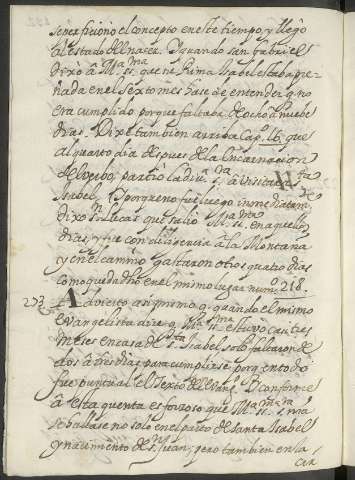 se perficionó el concepto en este tiempo, y llegó
al estado de nacer. Y quando san Gabriel
dixo â Mª SS. que su Prima Isabel estaba pre-
ñada en el sexto mes hase de entender q no
era cumplido porque faltaba de ocho â nuebe
dias. Dixe tambien arriba Cap.º 16. que
al quarto dia despues de la Encarnacion
del Verbo, partio la diu.ª Sª. â visitar
Isabel, y porque no fue luego inmediatam.
dixo S. Lucas que salió Mª SS. en aquellos
dias, y fue con diligencia â la Montaña
y en el camino gastaron otros quatro dias
como quedó dho en el mismo lugar num.º 218.
273 Advierto asi mismo q. quando el mismo
Evangelista dize q. Mª SS. estuvo casi tres
meses en casa de Sta Isabel, solo faltaron de
dos â tres dias para cumplirse, porq en todo
fue puntual el Texto del Evang.º Y conforme
â esta quenta es forsoso que Mª SS.
se hallase no solo en el parto de santa Isabel
y nacimiento de S. Juan, pero tambien en la
Cir